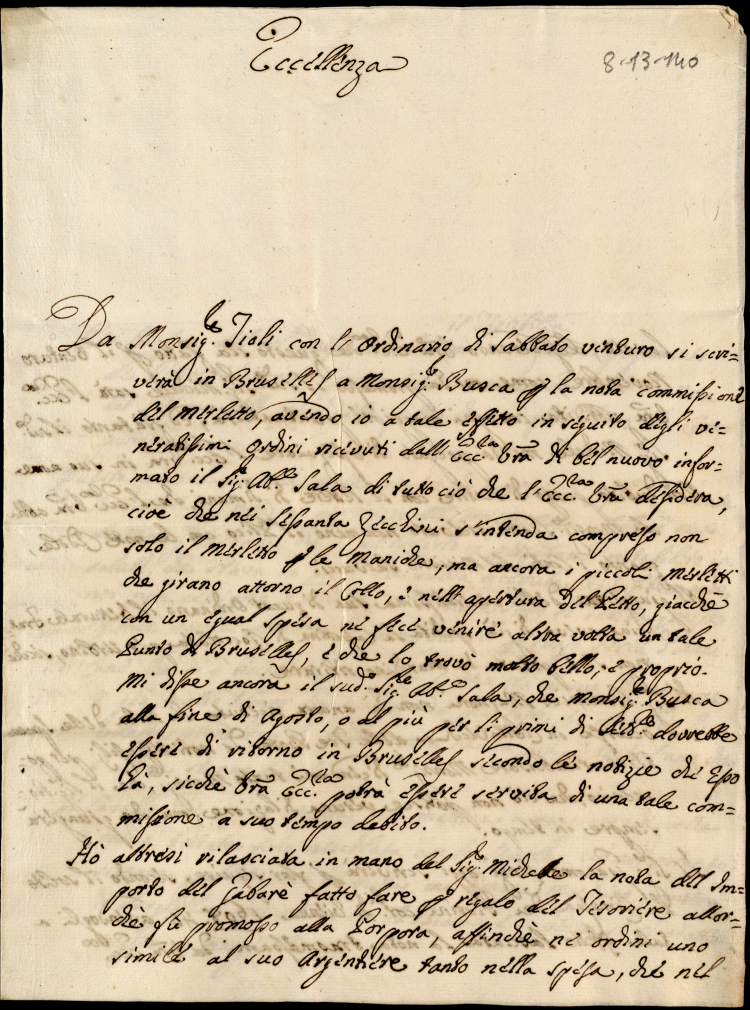 Eccellenza
8-13-140
Da Monsig.re Tioli con l'ordinario di Sabbato venturo si scri=
verà in Brusselles a Monsig.r Busca p la nota commissione
del merletto, avendo io a tale effetto in seguito degli ve=
neratissimi ordini ricevuti dall'Ecc.za Vra di bel nuovo infor=
mato il Sig.r Ab.e Sala di tutto ciò che l'Ecc.za Vra desidera,
cioè che nei sessanta Zecchini s'intenda compreso non
solo il merletto p le maniche, ma ancora i piccoli merletti
che girano attorno il Collo, e nell'apertura del Petto, giacchè
con un egual spesa ne fece venire altra volta un tale
Punto di Brusselles, e che lo trovò molto bello, e proprio.
Mi disse ancora il sud.o Sig.re Ab.e Sala, che Monsig.r Busca
alla fine di Agosto, o al più per li primi di 7bre dovrebbe
essere di ritorno in Brusselles secondo le notizie che Epo
tà, sicchè Vra Ecc.za potrà essere servita di una tale com=
missione a suo tempo debito.
Hò altresì rilasciata in mano del Sig.r Michele la nota dell'Im=
porto del Gabarè fatto fare p regalo del Tesoriere allor=
chè fù promosso alla Porpora, affinchè ne ordini uno
simile al suo Argentiere tanto nella spesa, che nel